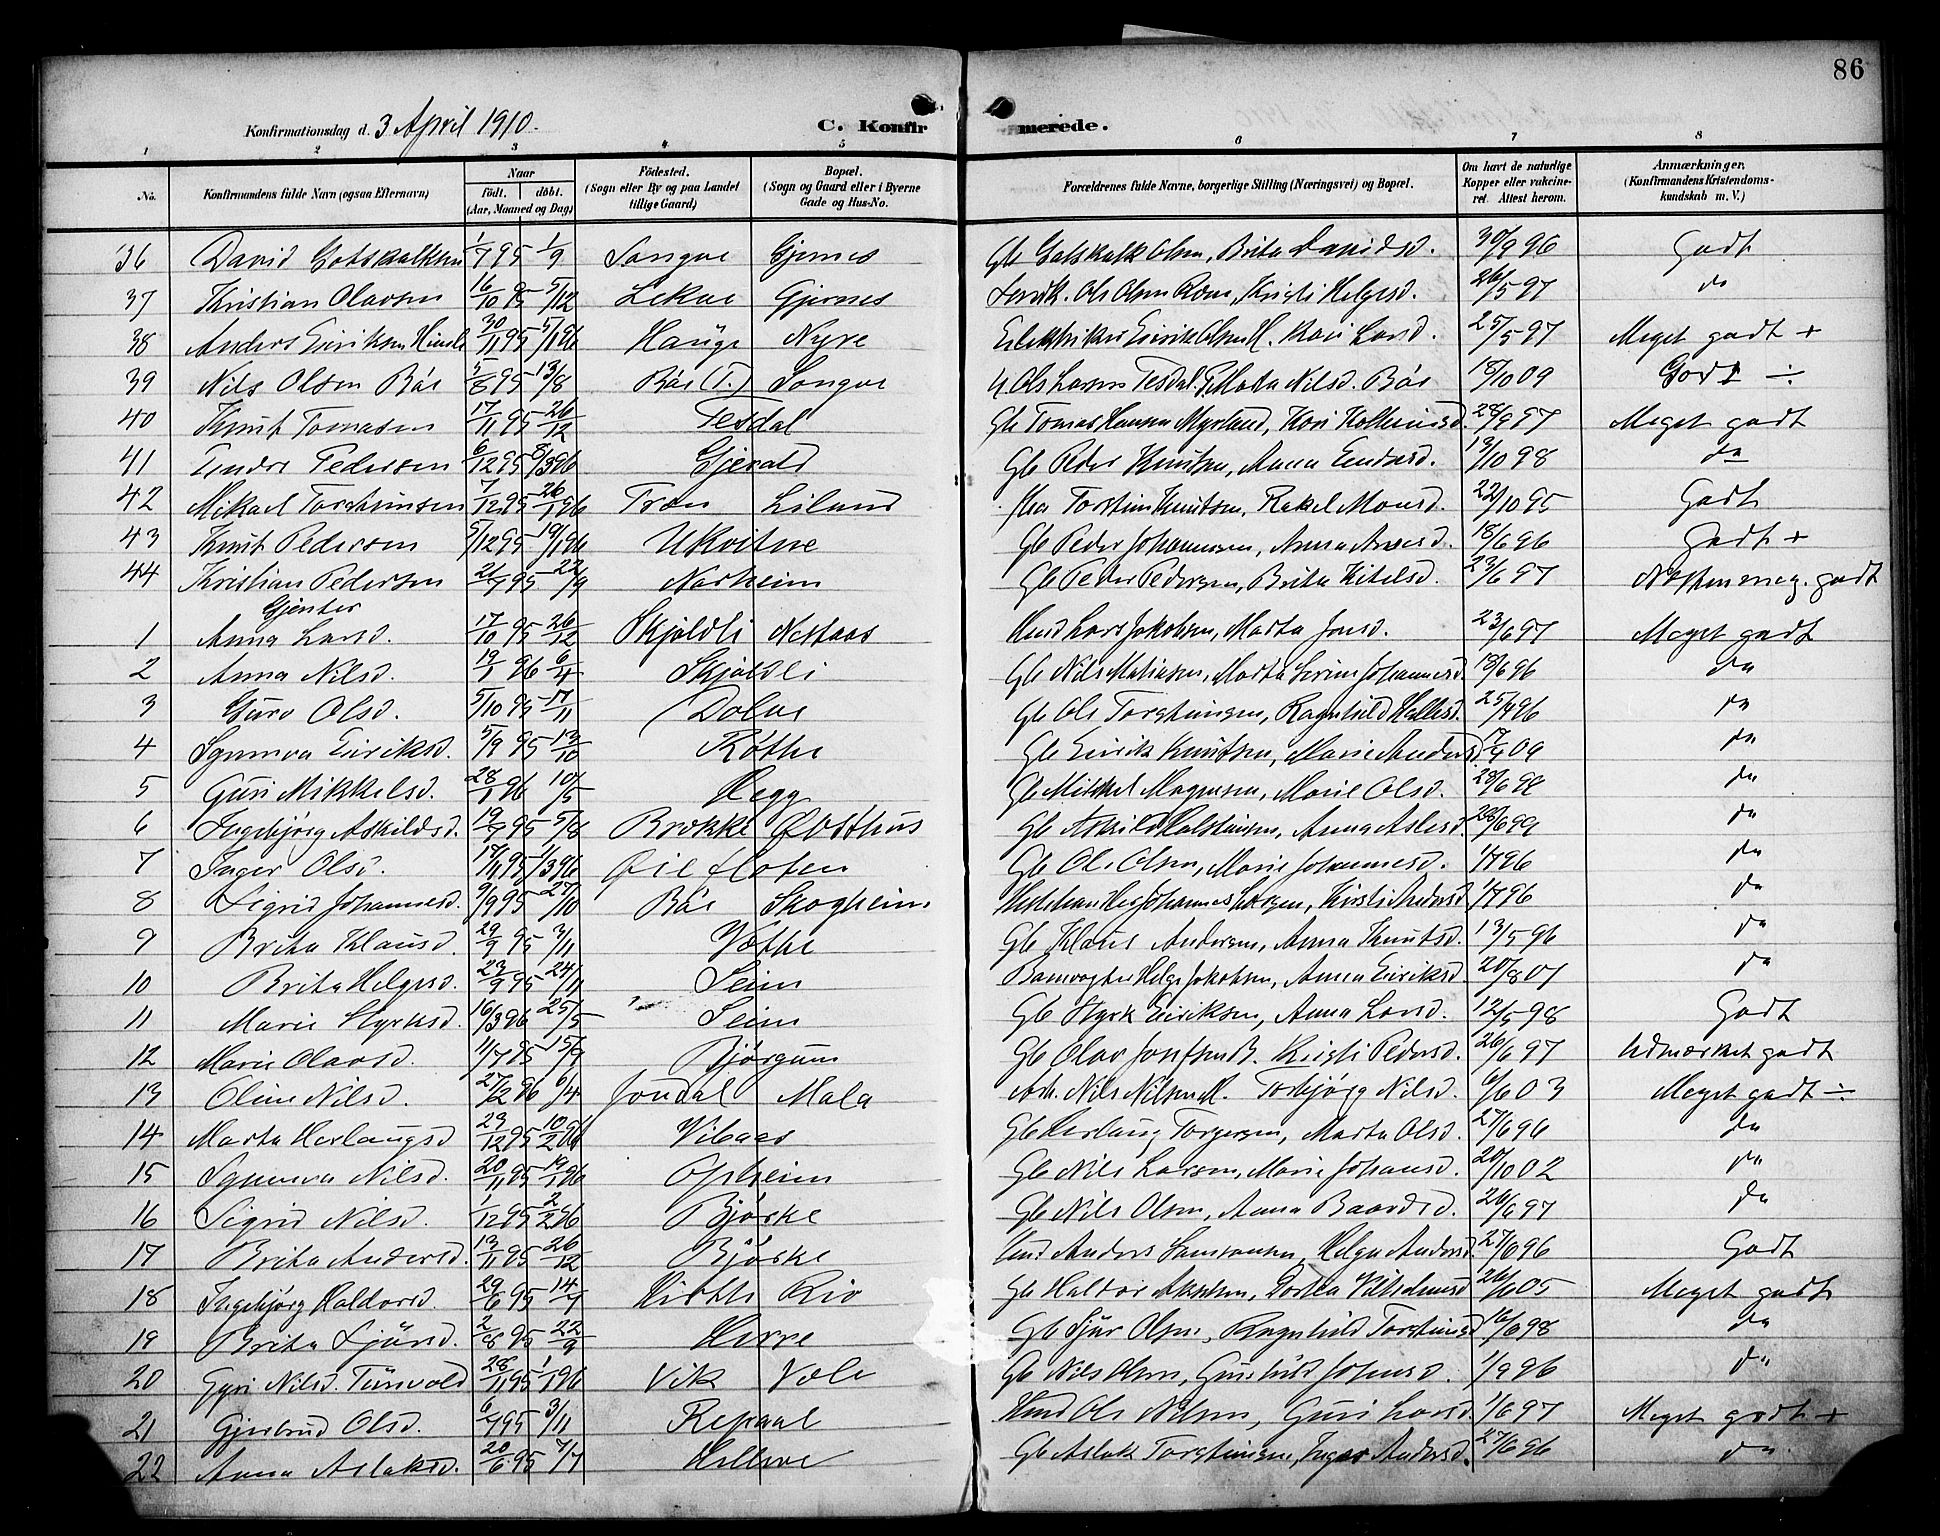 86
Konfirmationsdag d. 3 April 1910. C. Konfirmerede.
1 2 3 4 5 6 7 8
No. Konfirmandens fulde Navn (ogsaa Efternavn) Naar Födt. döbt. (Aar, Maaned og Dag) Födested. (Sogn eller By og paa Landet tillige Gaard) Bopæl. (Sogn og Gaard eller i Byerne Gade og Hus-No. Forældrenes fulde Navne, borgerlige Stilling (Næringsvei) og Bopæl. Om havt de naturlige Kopper eller vakcineret. Attest herom. Anmærkninger. (Konfirmandens Kristendomskundskab m. V.)
36 David Gotskalksen 1/7 95 1/9 Songve Gjernes Gb Gotskalk Olsen, Brita Davidsd. 30/9 96 Godt
37 Kristian Olavsen 16/10 95 5/12 Lekve Gjernes Ole Olsen Rom, Kristi Helgesd. 26/5 97 do
38 Anders Eiriksen Himle 30/11 95 5/1 96 Hauge Nyre Elektriker Eirik Olsen H. Kari Larsd. 25/5 97 Meget godt +
39 Nils Olsen Bøe 5/6 95 13/8 Bøe (T.) Songve Ole Larsen Tesdal. Marta Nilsd. Bøe 18/10 09 Godt ÷
40 Knut Tomasen 17/11 95 26/12 Tesdal Gb Tomas Hansen Myrland, Kari 28/9 97 Meget godt
41 Endre Pedersen 6/12 95 8/3 96 Gjerald Gb Peder Knutsen, Anna Endresd. 13/10 98 do
42 Mikael Torsteinsen 7/12 95 26/1 96 Tron Liland Torstein Knutsen, Rakel Monsd. 22/10 95 Godt
43 Knut Pedersen 5/12 95 19/1 96 Ukvitne Gb Peder Johannesen, Anna Arnesd. 18/6 96 Godt +
44 Kristian Pedersen 26/7 95 22/9 Norheim Gb Peder Pedersen, Brita Kitelsd. 23/6 97 Næsten meg. godt
Gjenter
1 Anna Larsd. 17/10 95 26/12 Skjoldli Nestaas Husm Lars Jakobsen, Marta Jonsd. 23/6 97 Meget godt
2 Anna Nilsd. 19/1 96 6/4 Skjoldli Gb Nils Matiasen, Marta Serine Johannesd. 18/6 96 do
3 Guro Olsd. 5/10 95 17/11 Dolve Gb Ole Torsteinsen, Ragnhild Hellesd. 25/9 96 do
4 Synneva Eiriksd. 5/9 95 13/10 Röthe Gb Eirik Knutsen, Marie Andersd. 17/9 09 do
5 Guri Mikkelsd. 28/1 96 10/5 Hegg Gb Mikkel Magnusen, Marie Olsd. 28/6 98 do
6 Ingebjørg Askildsd. 19/7 95 5/8 Brekke Østhus Gb Askild Halsteinsen, Anna Aslesd. 28/6 99 do
7 Inger Olsd. 17/11 95 1/3 96 Øie floten Gb Ole Olsen, Marie Johannesd. 1/7 96 do
8 Sigrid Johannesd. 9/9 95 27/10 Bøe Skogheim Johannes Larsen, Kirsti Andersd. 1/7 96 do
9 Brita Klausd. 29/9 95 3/11 Væthe Gb Klaus Andersen, Anna Knutsd. 13/5 96 do
10 Brita Helgesd. 23/9 95 24/11 Seim Banevogter Helge Jakobsen, Anna Eiriksd. 20/8 07 do
11 Marie Styrksd. 16/3 96 25/5 Seim Gb Styrk Eiriksen, Anna Larsd. 12/5 98 Godt
12 Marie Olavsd. 11/7 95 15/9 Bjørgum Gb Olav Josefsen B. Kristi Pedersd. 26/6 97 Udmærket godt
13 Oline Nilsd. 27/2 96 6/4 Jondal Mala Arb. Nils Nilsen M. Torbjørg Nilsd. 6/6 03 Meget godt ÷
14 Marta Herlaugsd 23/12 95 10/2 96 Vibaas Gb Herlaug Torgersen, Marta Olsd. 27/6 96 do
15 Synneva Nilsd. 20/11 95 19/1 96 Opheim Gb Nils Larsen, Marie Johansd. 20/10 02 do
16 Sigrid Nilsd. 1/12 95 2/2 96 Bjørke Gb Nils Olsen, Anna Baardsd. 26/6 97 do
17 Brita Andersd. 13/11 95 26/12 Bjørke Husm Anders Samsonsen, Helga Andersd. 27/6 96 Godt
18 Ingebjørg Haldorsd. 29/6 95 14/7 Rio Gb Haldor Akselsen, Dortea 26/6 05 Meget godt
19 Brita Sjursd. 2/8 95 22/9 Herre Gb Sjur Olsen, Ragnhild Torsteinsd 16/6 98 do
20 Gyri Nilsd. Tunvald 28/11 95 1/1 96 Vik Vole Gb Nils Olsen, Gunhild Johnsd. 1/9 96 do
21 Gjertrud Olsd. 6/9 95 3/11 Repaal Husm Ole Nilsen, Guri Larsd 1/6 97 Meget godt +
22 Anna Aslaksd. 20/6 95 7/7 Helleve Gb Aslak Torsteinsen, Inger Andersd. 27/6 96 do